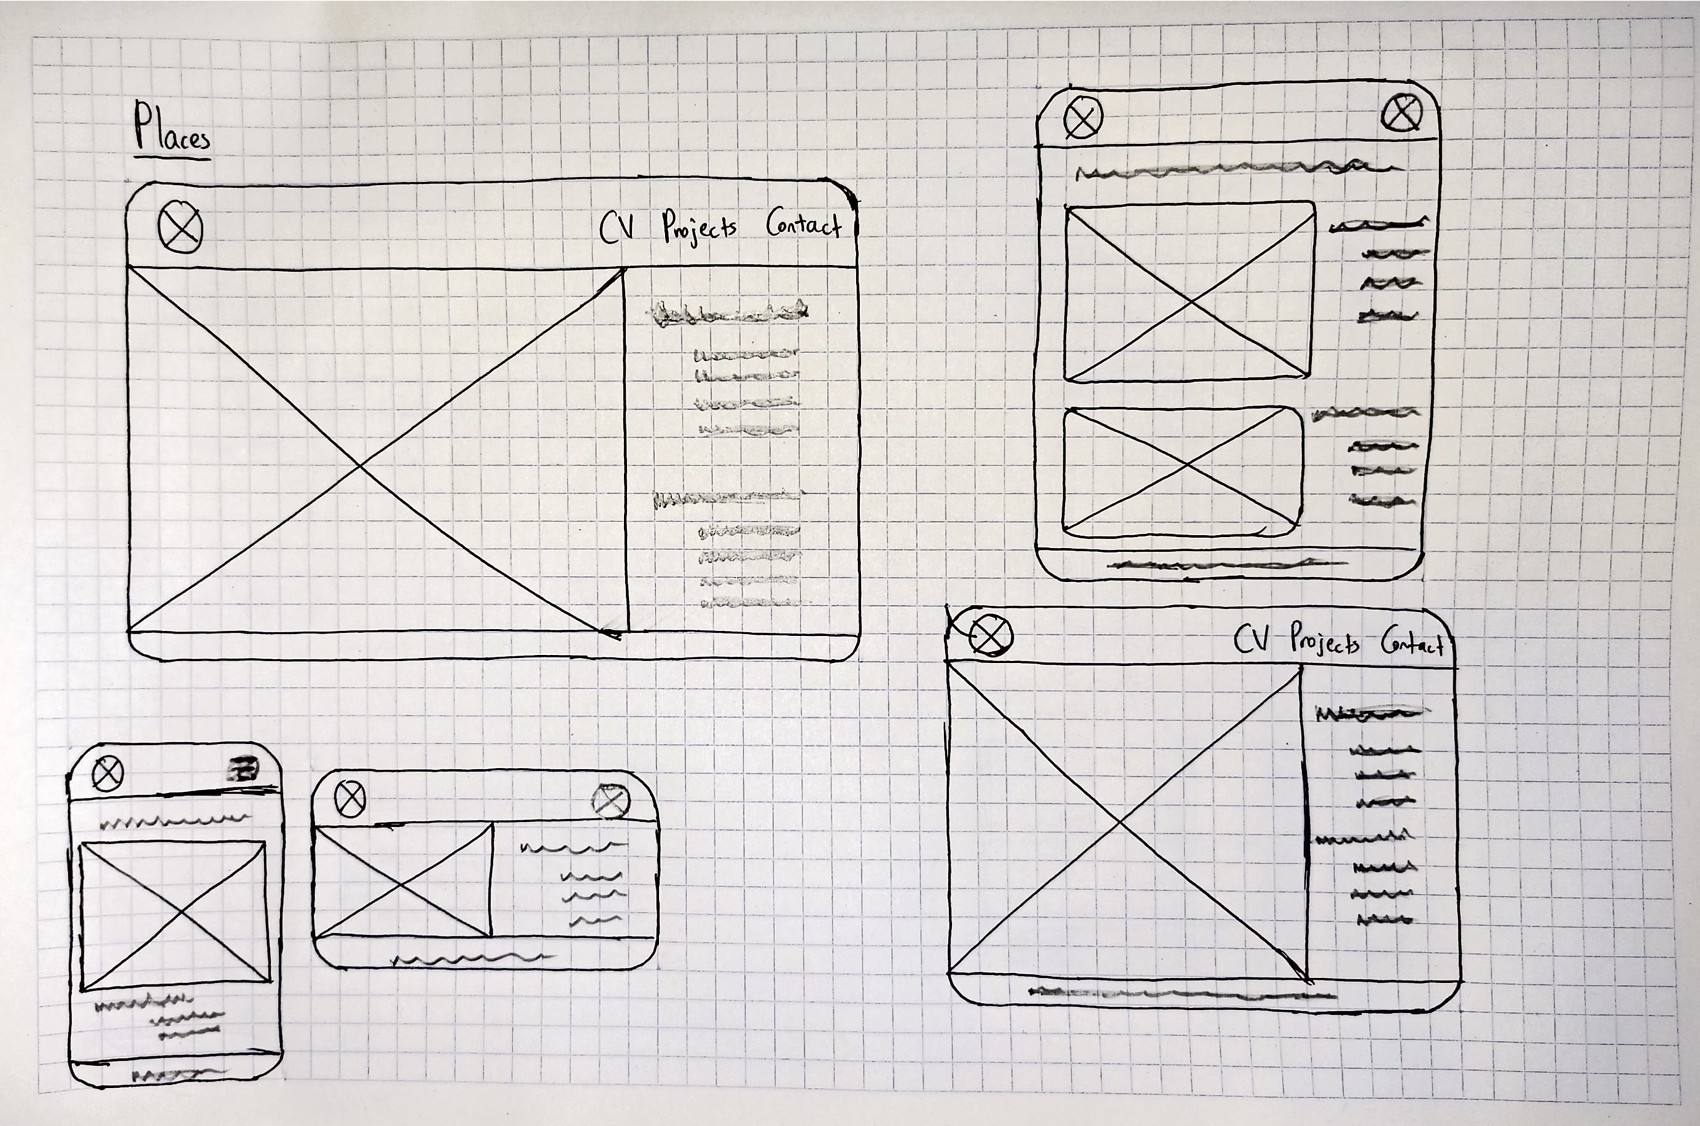 Places
CV Projects Contact
CV Projects Contact